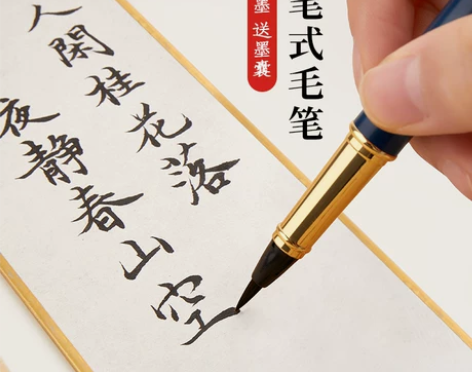 笔式毛笔
墨 送墨囊
人閑桂花落
夜靜春山空